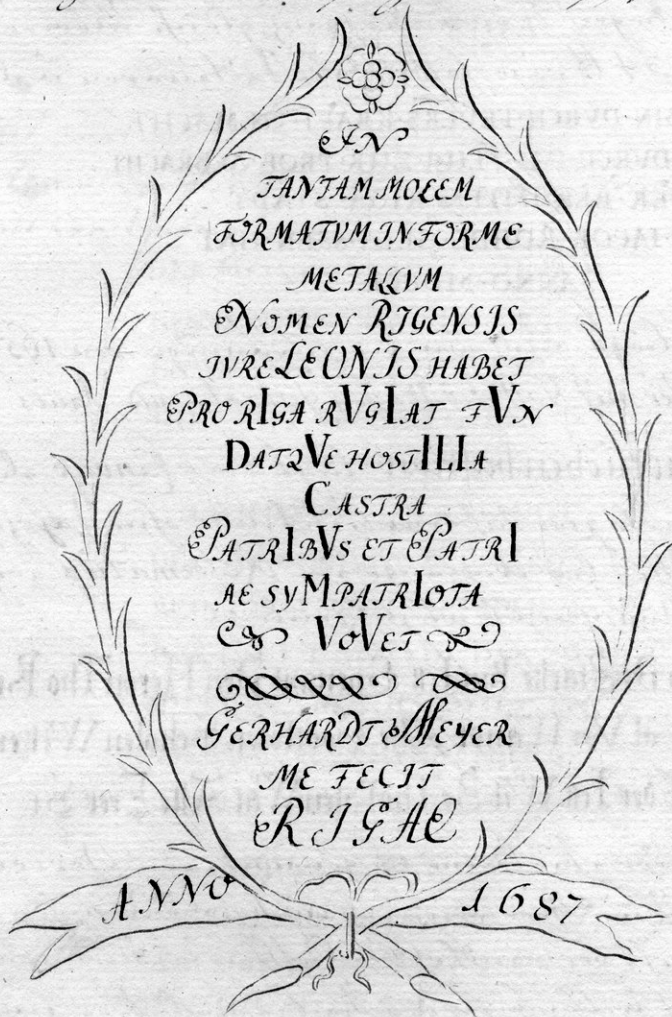 IN
TANTAM MOLEM
FORMATVM INFORME
METALLVM
NOMEN RIGENSIS
IVRE LEONIS HABET
PRO RIGA RVGIAT FVN
DATQVE HOSTILIA
CASTRA
PATRIBVS ET PATRI
AE SYMPATRIOTA
VOVET
GERHARDT MEYER
ME FECIT
RIGAE
ANNO 1687